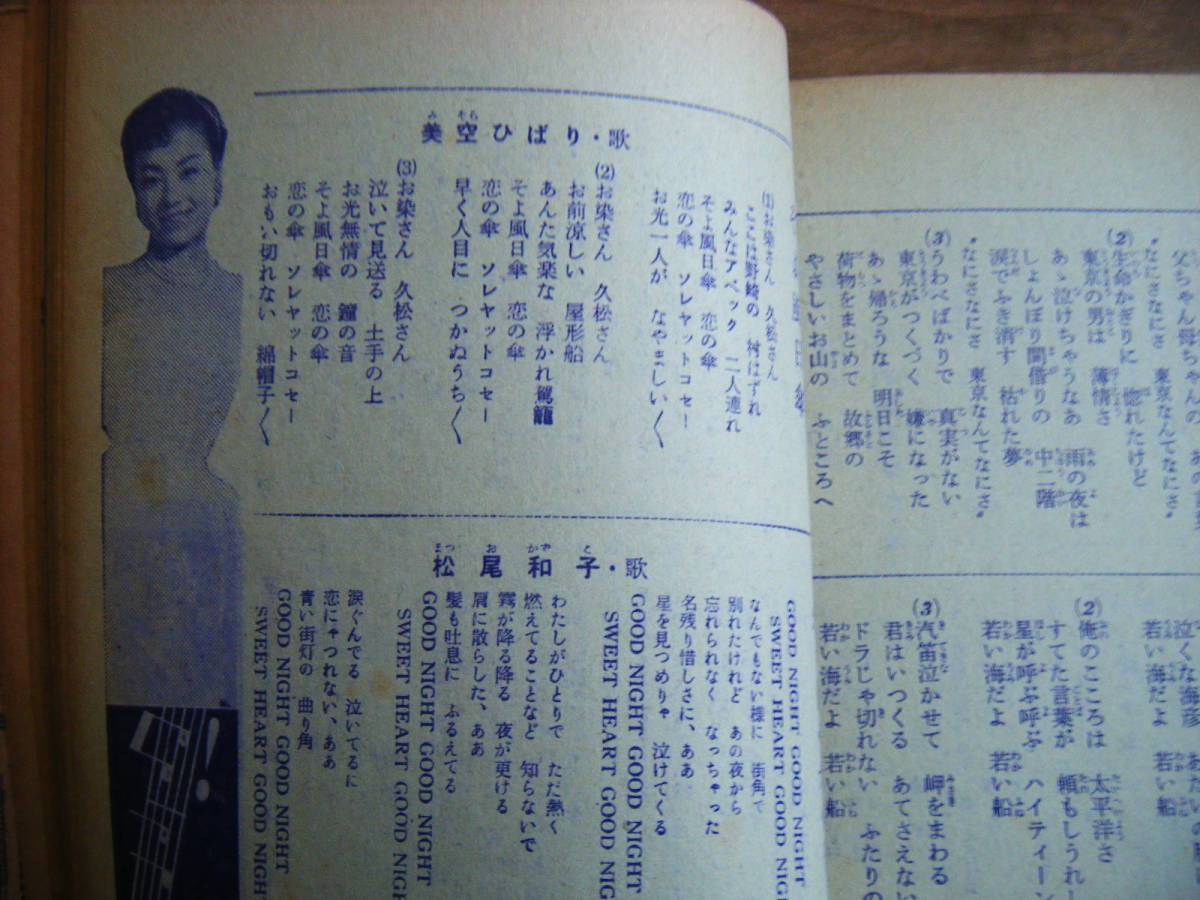 父ちゃん母ちゃんの
〝なにさなにさ 東京なんてなにさ〟
(2)生命かぎりに 惚れたけど
東京の男は 薄情さ
あゝ泣けちゃうなあ 雨の夜は
しょんぼり間借りの 中二階
涙でふき消す 枯れた夢
〝なにさなにさ 東京なんてなにさ〟
(3)うわべばかりで 真実がない
東京がつくづく 嫌になった
あゝ帰ろうな 明日こそ
荷物をまとめて 故郷の
やさしいお山の ふところへ
泣くな海彦
若い海だよ
(2)俺のこころは 太平洋さ
すてた言葉が 頼もしうれし
星が呼ぶ呼ぶ ハイティーン
若い海だよ 若い船
(3)汽笛泣かせて 岬をまわる
君はいつくる あてさえない
ドラじゃ切れない ふたりの
若い海だよ 若い船
(1)お染さん 久松さん
ここは野崎の 村はずれ
みんなアベック 二人連れ
そよ風日傘 恋の傘
恋の傘 ソレヤットコセー
お光一人が なやましい〱
美空ひばり・歌
(2)お染さん 久松さん
お前涼しい 屋形船
あんた気楽な 浮かれ駕籠
そよ風日傘 恋の傘
恋の傘 ソレヤットコセー
早く人目に つかぬうち〱
(3)お染さん 久松さん
泣いて見送る 土手の上
お光無情の 鐘の音
そよ風日傘 恋の傘
恋の傘 ソレヤットコセー
おもい切れない 綿帽子〱
松尾和子・歌
GOOD NIGHT GOOD NIGHT
SWEET HEART GOOD NIGHT
なんでもない様に 街角で
別れたけれど あの夜から
忘れられなく なっちゃった
名残り惜しさに、ああ
星を見つめりゃ 泣けてくる
GOOD NIGHT GOOD NIGHT
SWEET HEART GOOD NIG
わたしがひとりで ただ熱く
燃えてることなど 知らないで
霧が降る降る 夜が更ける
肩に散らした、ああ
髪も吐息に ふるえてる
GOOD NIGHT GOOD NIGHT
SWEET HEART GOOD NIG
涙ぐんでる 泣いてるに
恋にゃつれない、ああ
青い街灯の 曲り角
GOOD NIGHT GOOD NIGHT
SWEET HEART GOOD NIGHT